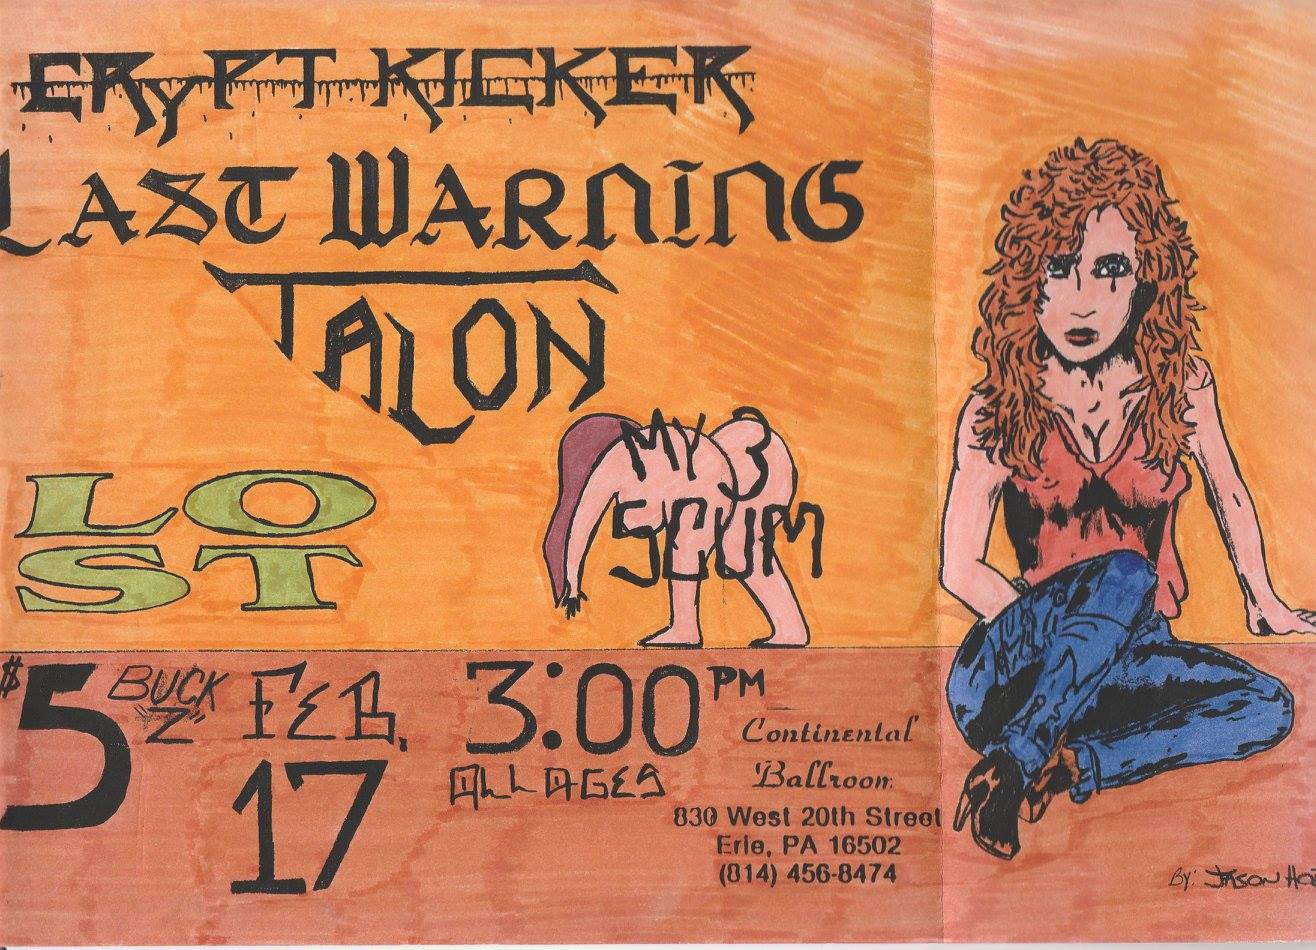 CRYPT KICKER
LAST WARNING
TALON
LO
ST
MY 3
SCUM
$5 BUCK
"Z"
FEB.
17
3:00 PM
ALL AGES
Continental
Ballroom
830 West 20th Street
Erie, PA 16502
(814) 456-8474
By: JASON